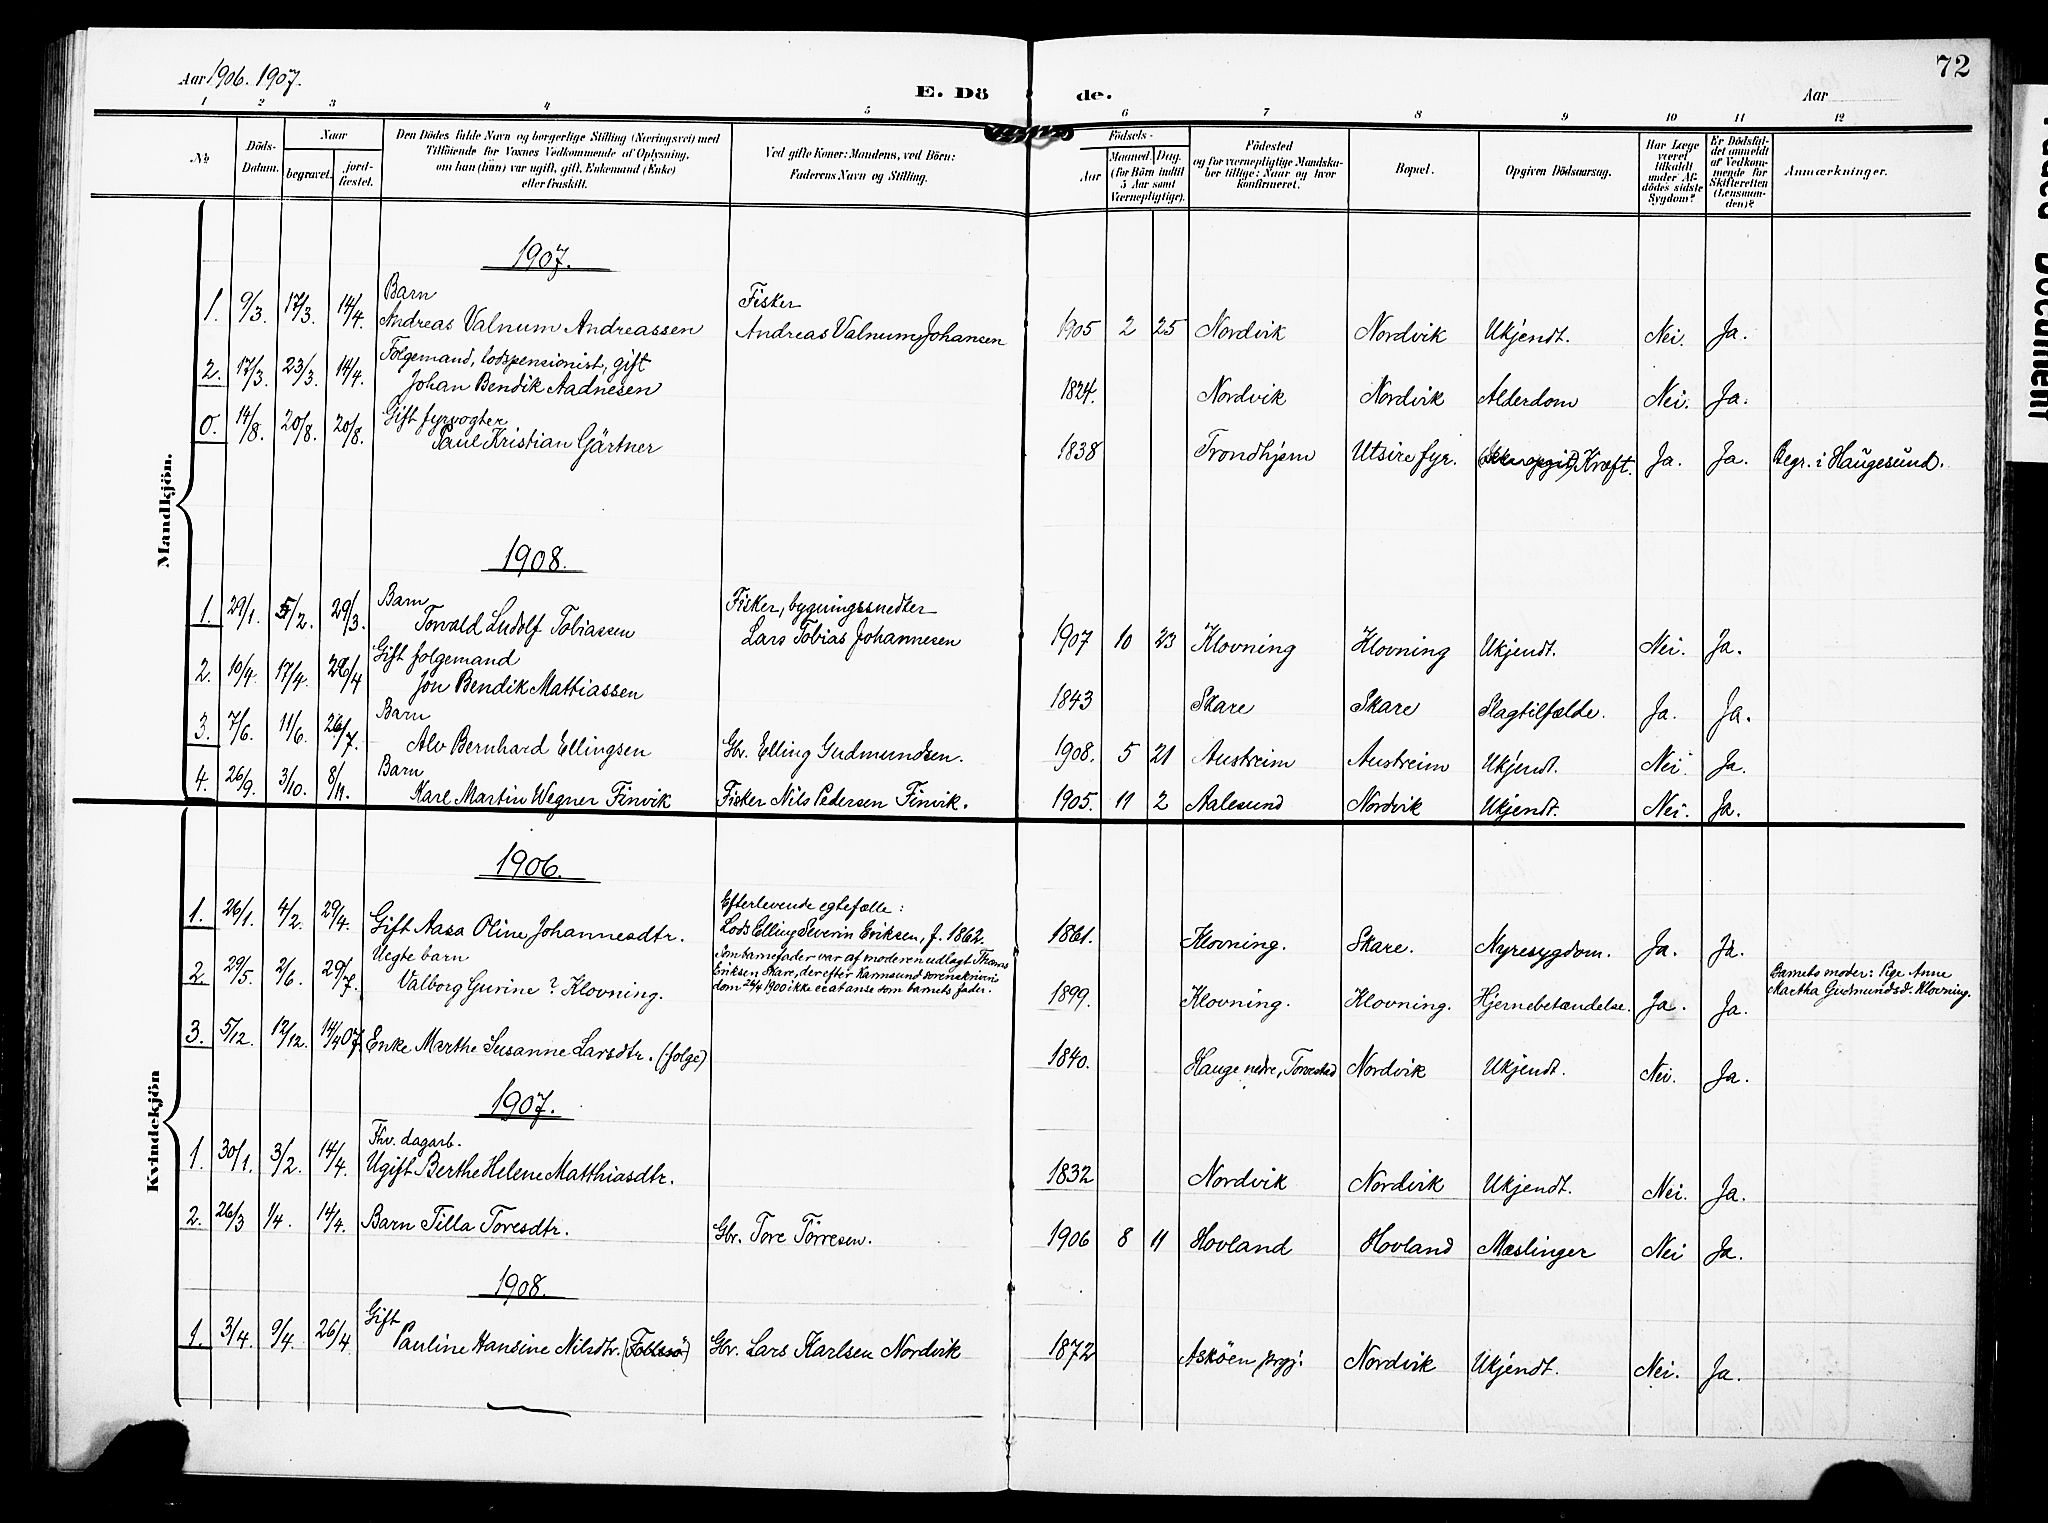 Aar 1906. 1907.
E. Dö de.
Aar
72
1 2 3 4 5 6 7 8 9 10 11 12
№
Döds-Datum.
Naar
begravet.
jord-fæstet.
Den Dödes fulde Navn og borgerlige Stilling (Næringsvei) med
Tilföiende for Voxnes Vedkommende af Oplysning,
om han (hun) var ugift, gift, Enkemand (Enke)
eller fraskilt.
Ved gifte Koner: Mandens, ved Börn:
Faderens Navn og Stilling.
Födsels-
Aar
Maaned. Dag.
(for Börn indtil
5 Aar samt
Værnepligtige).
Födested
og for værnepligtige Mandska-
ber tillige: Naar og hvor
konfirmeret.
Bopæl.
Opgiven Dödsaarsag.
Har Læge
været
tilkaldt
under Af-
dödes sidste
Sygdom?
Er Dödsfal-
det anmeldt
af Vedkom-
mende for
Skifteretten
(Lensman-
den)?
Anmærkninger.
Mandkjön.
1907.
Barn Fisker
1. 9/3. 17/3. 14/4. Andreas Valnum Andreassen Andreas Valnum Johansen 1905 2 25 Nordvik Nordvik Ukjendt. Nei. Ja.
Folgemand, lodspensionist, gift
2. 17/3. 23/3. 14/4. Johan Bendik Aadnesen 1824. Nordvik Nordvik Alderdom Nei. Ja.
Gift fyrvogter
0. 14/8. 20/8. 20/8. Paul Kristian Gärtner 1838 Trondhjem Utsire fyr. Kræft. Ja. Ja. Begr. i Haugesund.
1908.
Barn Fisker, bygningssnedker
1. 29/1. 5/2. 29/3. Torvald Ludolf Tobiassen Lars Tobias Johannesen 1907 10 23 Klovning Klovning Ukjendt. Nei. Ja.
Gift folgemand
2. 10/4. 17/4. 26/4 Jon Bendik Mattiassen 1843 Skare Skare Slagtilfælde. Ja. Ja.
Barn
3. 7/6. 11/6. 26/7. Alv Bernhard Ellingsen Gbr. Elling Gudmundsen. 1908. 5 21 Austreim Austreim Ukjendt. Nei. Ja.
Barn
4. 26/9. 3/10. 8/11. Karl Martin Wegner Finvik Fisker Nils Pedersen Finvik. 1905. 11 2 Aalesund Nordvik Ukjendt. Nei. Ja.
Kvindekjön
1906.
Efterlevende egtefælle:
1. 26/1. 4/2. 29/4. Gift Aasa Oline Johannesdtr. Lods Elling Severin Eriksen, f. 1862. 1861. Klovning. Skare. Nyresygdom. Ja. Ja.
Uegte barn Som barnefader var af moderen udlagt Thomas
Eriksen Skare, der efter Karmsund sorenskriveri
2. 29/5. 2/6. 29/7. Valborg Gurine ? Klovning. dom 26/4 1900 ikke er at anse som barnets fader. 1899. Klovning. Klovning. Hjernebetændelse. Ja. Ja. Barnets moder: Pige Anne
Martha Gudmundsd. Klovning.
3. 5/12. 12/12. 14/4 07. Enke Marthe Susanne Larsdtr. (folge) 1840. Hauge nedre, Torvestad Nordvik Ukjendt. Nei. Ja.
1907.
Fhv. dagarb.
1. 30/1. 3/2. 14/4. Ugift Berthe Helene Matthiasdtr. 1832 Nordvik Nordvik Ukjendt. Nei. Ja.
2. 26/3 1/4. 14/4. Barn Tilla Toresdtr. Gbr. Tore Törresen. 1906 8 11 Hovland Hovland Mæslinger Nei Ja.
1908.
Gift
1. 3/4. 9/4. 26/4 Pauline Hansine Nilsdtr. Gbr. Lars Karlsen Nordvik 1872 Asköen prgj. Nordvik Ukjendt. Nei. Ja.